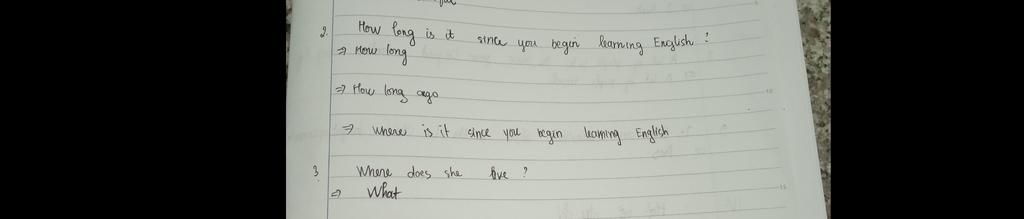 2. How long is it since you begin learning English?
⇒ How long
⇒ How long ago
⇒ where is it since you begin learning English
3. Where does she live ?
⇒ What